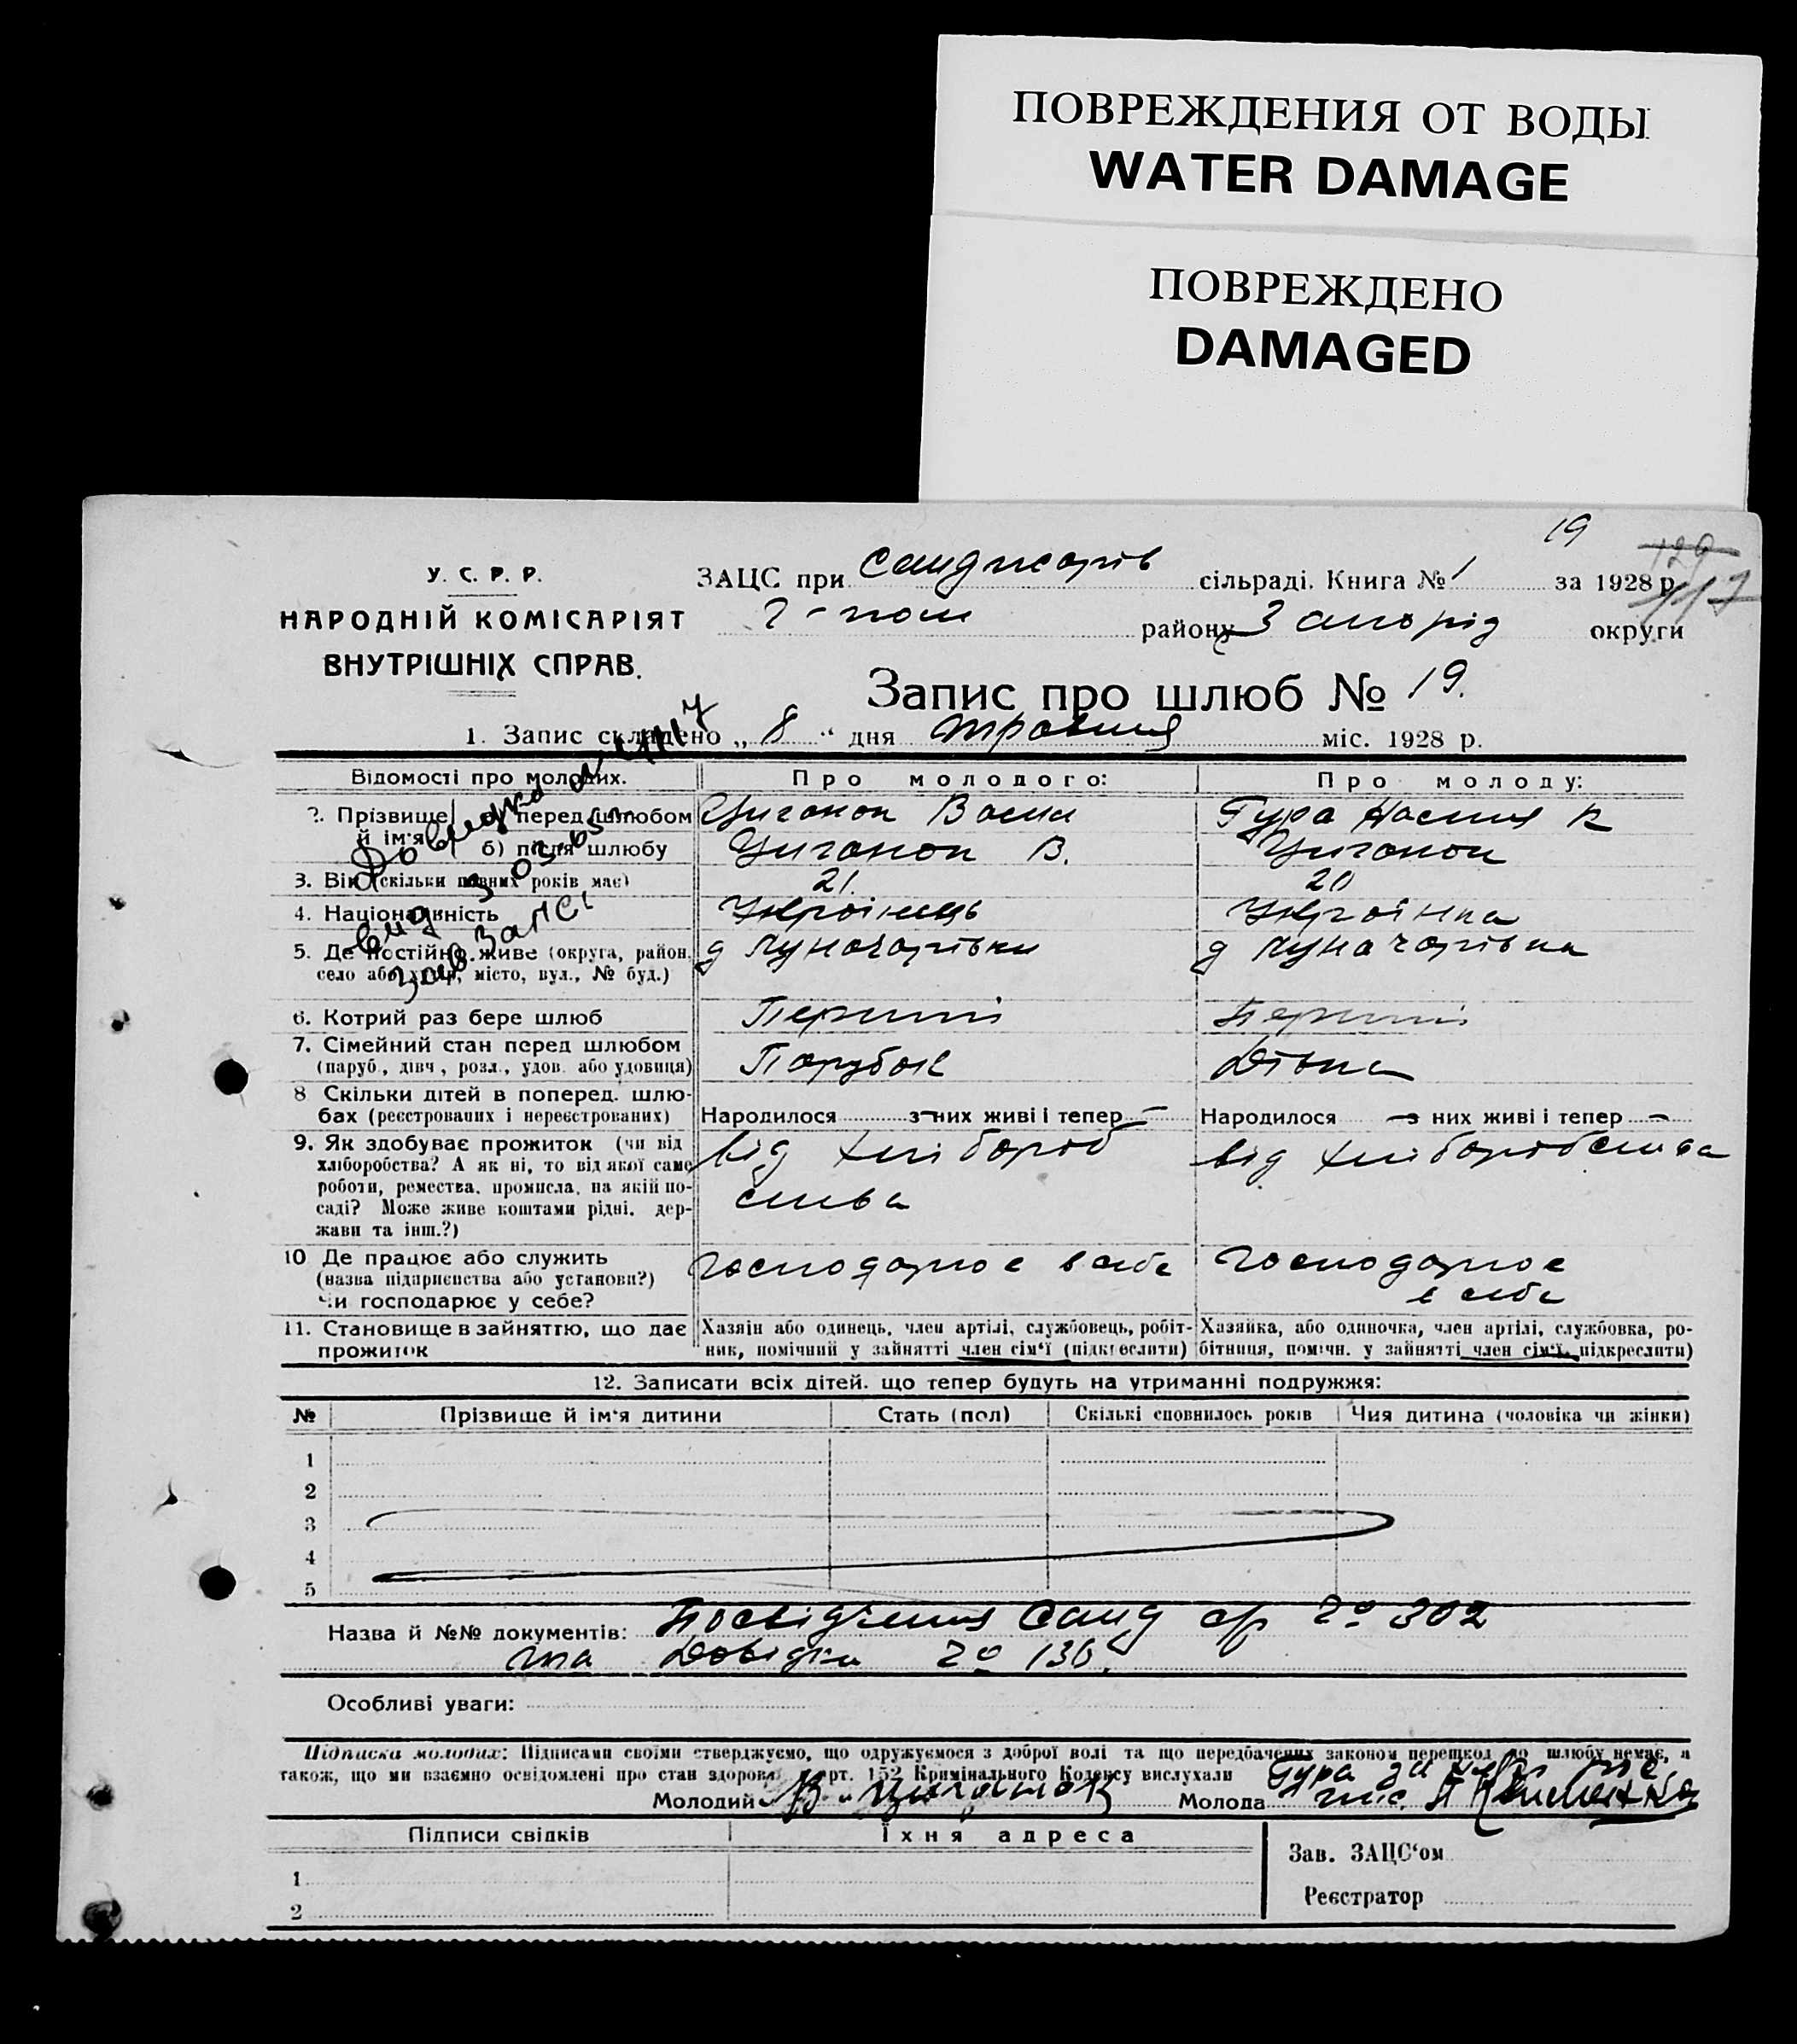 ПОВРЕЖДЕНИЯ ОТ ВОДЫ
WATER DAMAGE
ПОВРЕЖДЕНО
DAMAGED
19
129
117
У. С. Р. Р.
НАРОДНІЙ КОМІСАРІЯТ
ВНУТРІШНІХ СПРАВ.
ЗАЦС при сільраді. Книга № 1 за 1928 р.
району округи
Запис про шлюб № 19.
1. Запис складено „ 8 “ дня травня міс. 1928 р.
Відомості про молодих. Про молодого: Про молоду:
2. Прізвище й ім'я
а) перед шлюбом Циганок Васи Гура Настя К
б) після шлюбу Циганок В. Циганок
3. Вік (скільки повних років має) 21. 20
4. Національність Українець Українка
5. Де постійно живе (округа, район, село або хутір, місто, вул., № буд.) д Луначарівки д Луначарівка
6. Котрий раз бере шлюб Перший Перший
7. Сімейний стан перед шлюбом (паруб., дівч., розл., удов. або удовиця) Парубок Дівка
8 Скільки дітей в поперед. шлюбах (реєстрованих і нереєстрованих) Народилося з них живі і тепер – Народилося – з них живі і тепер –
9. Як здобуває прожиток (чи від хліборобства? А як ні, то від якої саме роботи, ремества, промисла, на якій посаді? Може живе коштами рідні, держави та інш.?) від хлібороб ства від хліборобства
10 Де працює або служить (назва підприємства або установи?) Чи господарює у себе? господарює в себе господарює в себе
11. Становище в зайняттю, що дає прожиток
Хазяін або одинець, член артілі, службовець, робітник, помічний у зайнятті член сім'ї (підкреслити)
Хазяйка, або одиночка, член артілі, службовка, робітниця, помічн. у зайнятті член сім'ї, підкреслити)
12. Записати всіх дітей, що тепер будуть на утриманні подружжя:
№ Прізвище й ім'я дитини Стать (пол) Скількі сповнилось років Чия дитина (чоловіка чи жінки)
1
2
3
4
5
Назва й №№ документів: Посвідчення Санд с/р № 302
та Довідки № 136.
Особливі уваги:
Підписка молодих: Підписами своїми стверджуємо, що одружуємося з доброї волі та що передбачених законом перешкод до шлюбу немає, а
також, що ми взаємно освідомлені про стан здоровя й арт. 152 Кримінального Кодексу вислухали
Молодий В. Циганок Молода Гура за неї
Підписи свідків Їхня адреса
Зав. ЗАЦС'ом
1
Реєстратор
2